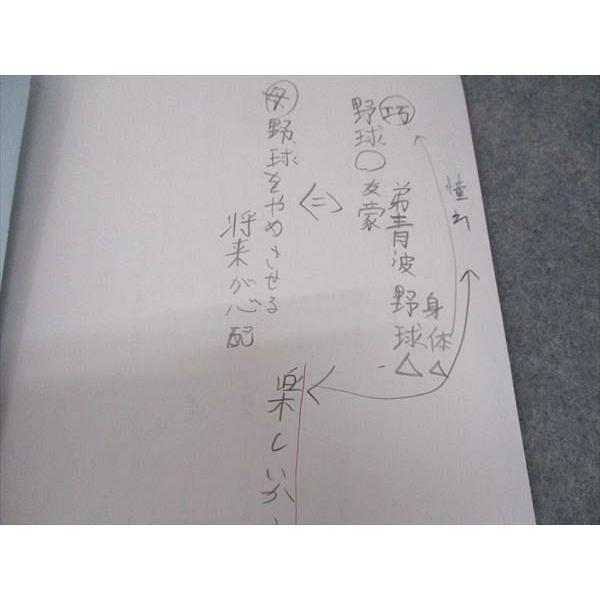 巧
野球○
憧れ
弟青波
友蒙
身体△
野球△
⇔
母野球をやめさせる
将来が心配
楽しいか